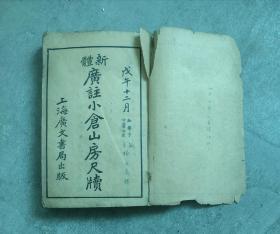 新體
廣註小倉山房尺牘
上海廣文書局出版
戊午十二月